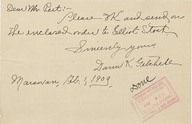 Dear Mr. Pert:-
Please OK and send on
the enclosed order to Elliot Stock
Sincerely yours
K. Getchell
1, 1909
Done